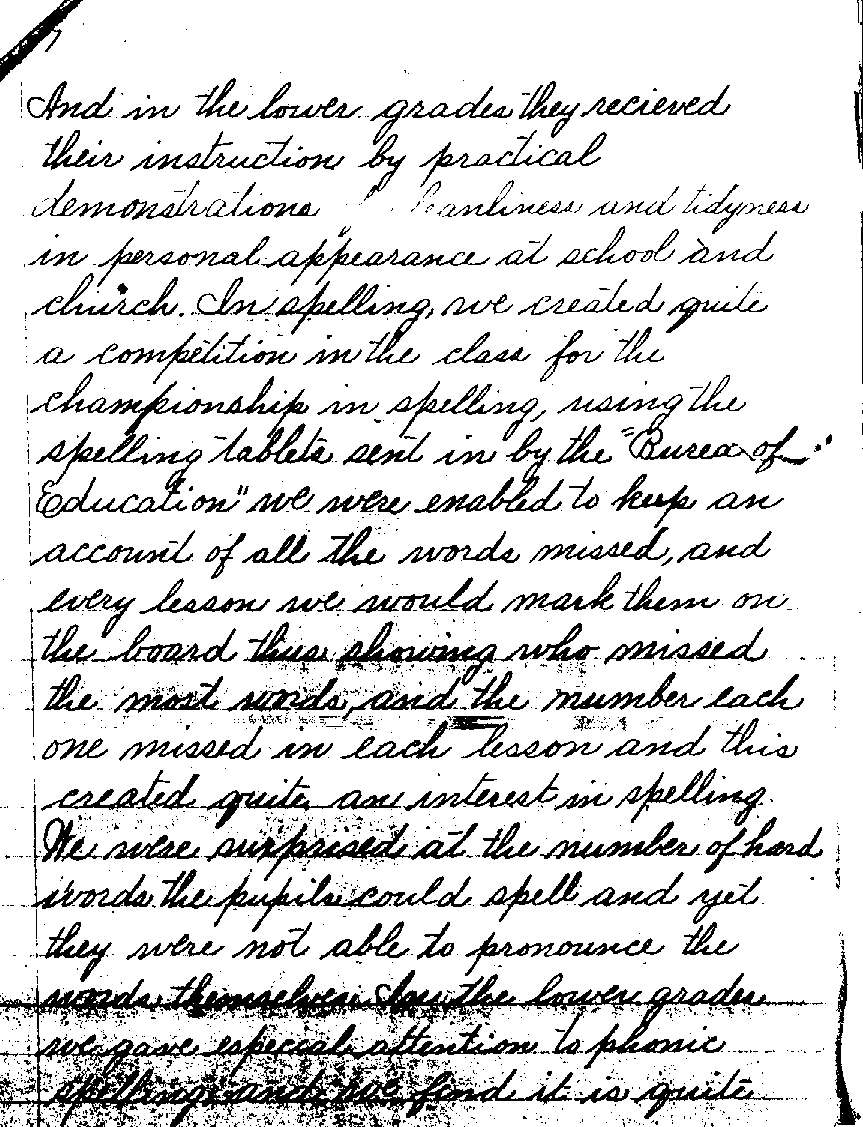 And in the lower grades they recieved
their instruction by practical
demonstrations leanliness and tidyness
in personal appearance at school and
church. In spelling, we created quite
a competition in the class for the
championship in spelling, using the
spelling tablets sent in by the "Burea of
Education" we were enabled to keep an
account of all the words missed, and
every lesson we would mark them on
the board thus showing who missed
the most words, and the number each
one missed in each lesson and this
created quite an interest in spelling.
We were surprised at the number of hard
words the pupils could spell and yet
they were not able to pronounce the
words themselves. In the lower grades
we gave especial attention to phonic
spelling and we find it is quite